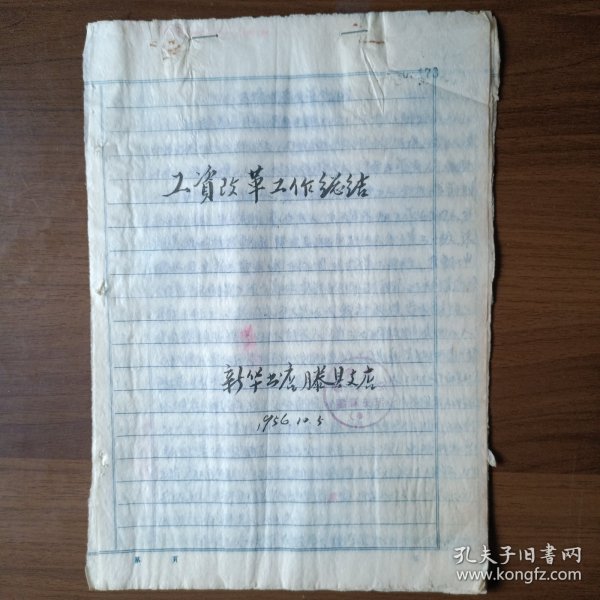 173
工資改革工作総结
新华书店滕县支店
1956.10.5
第 頁
孔夫子旧書网
www.kongfz.com